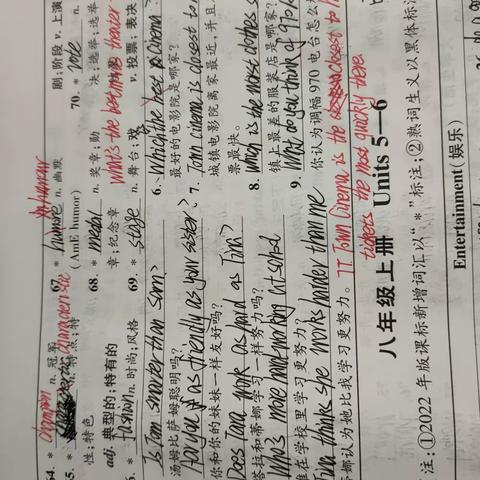 champion n. 冠军
67. * humore n. 幽默 humour
剧; 阶段 v. 上演
n. 特点; 特
(AmE humor)
70. * vote
性; 特色
68. * medal n. 奖章; 勋
决; 选举; 选举
adj. 典型的; 特有的
章; 纪念章
v. 投票; 表决
fashion n. 时尚; 风格
69. * stage n. 舞台; 戏
What's the best movie theater
Is Tom smarter than Sam?
汤姆比萨姆聪明吗?
Are you as friendly as your sister?
你和你的妹妹一样友好吗?
Does Tara work as hard as Tina?
塔拉和蒂娜学习一样努力吗?
Who's more hard-working at school
谁在学校里学习更努力?
Tina thinks she works harder than me
蒂娜认为她比我学习更努力。
6. Which the best cinema?
最好的电影院是哪家?
7. Town cinema is closest to
城镇电影院离家最近, 并且
票最快。
8. Which is the most clothes s
镇上最差的服装店是哪家?
9. What do you think of 970
你认为调幅 970 电台怎么
7. Town Cinema is the closest to h
tickets the most quickly there
八年级上册 Units 5—6
注: ①2022 年版课标新增词汇以“*”标注; ②熟词生义以黑体标
Entertainment(娱乐)